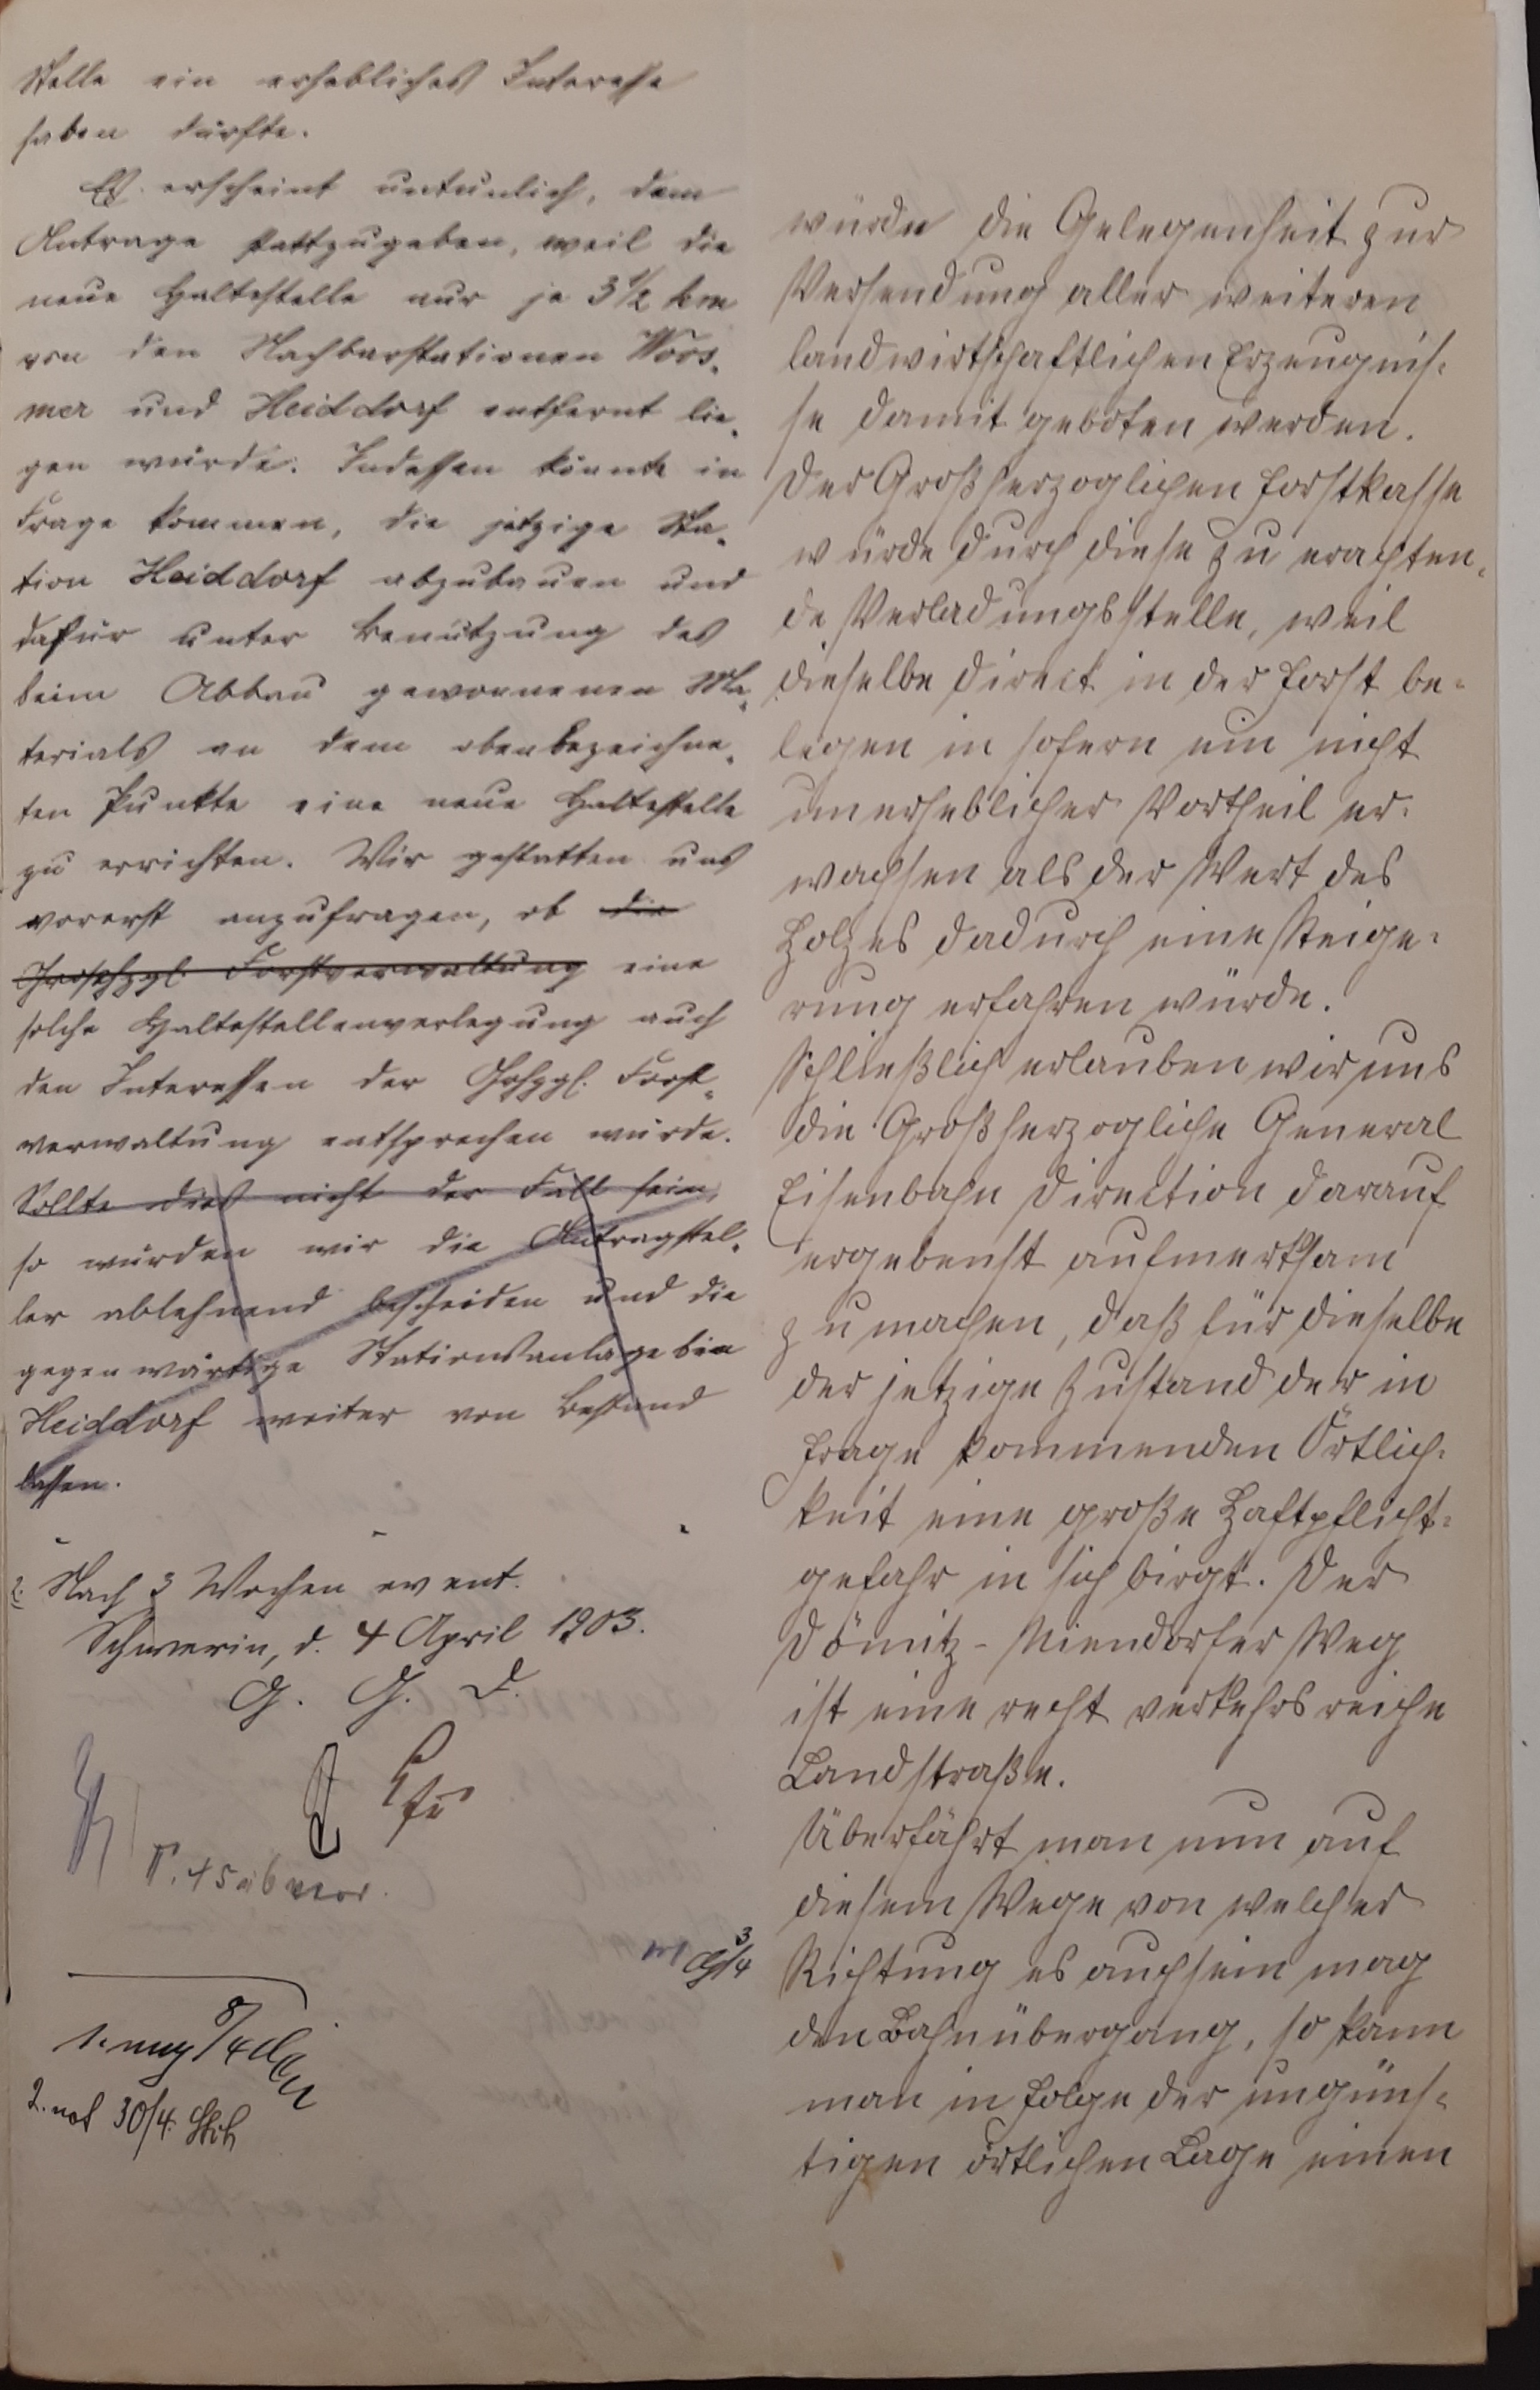 Stelle ein erhebliches Interesse
haben dürfte.
Es erscheint untunlich, dem
Antrage stattzugeben, weil die
neue Haltestelle nur je 3 1/2 km
von den Nachbarstationen Woos-
mer und Heiddorf entfernt lie-
gen würde. Indessen könnte in
Frage kommen, die jetzige Sta-
tion Heiddorf abzubauen und
dafür unter Benutzung des
beim Abbau gewonnenen Ma-
terials an dem obenbezeichne-
ten Punkte eine neue Haltestelle
zu errichten. Wir gestatten uns
vorerst anzufragen, ob die
Großhzgl. Forstverwaltung eine
solche Haltestellenverlegung auch
den Interessen der Grhzgl. Forst-
verwaltung entsprechen würde.
Sollte dies nicht der Fall sein,
so würden wir die Antragstel-
ler ablehnend bescheiden und die
gegenwärtige Stationsanlage bei
Heiddorf weiter von Bestand
lassen.
2. Nach 3 Wochen event.
Schwerin, d. 4 April 1903.
G. G. D.
3/4
8/4
2. not 30/4.
würde die Gelegenheit zur
Versendung aller weiteren
landwirtschaftlichen Erzeugnis-
se damit geboten werden.
Der Großherzoglichen Forstkasse
würde durch diese zu erachten-
de Verladungsstelle, weil
dieselbe direct in der Forst be-
legen in sofern ein nicht
unerheblicher Vortheil er-
wachsen als der Wert des
Holzes dadurch eine Steige-
rung erfahren würde.
Schließlich erlauben wir uns
die Großherzogliche General
Eisenbahn Direction darauf
ergebenst aufmerksam
zu machen, daß für dieselbe
der jetzige Zustand der in
Frage kommenden Örtlich-
keit eine große Haftpflicht-
gefahr in sich birgt. Der
Dömitz - Niendorfer Weg
ist eine recht verkehrsreiche
Landstraße.
Überfährt man nun auf
diesem Wege von welcher
Richtung es auch sein mag
den Bahnübergang, so kann
man in Folge der ungüns-
tigen örtlichen Lage einen